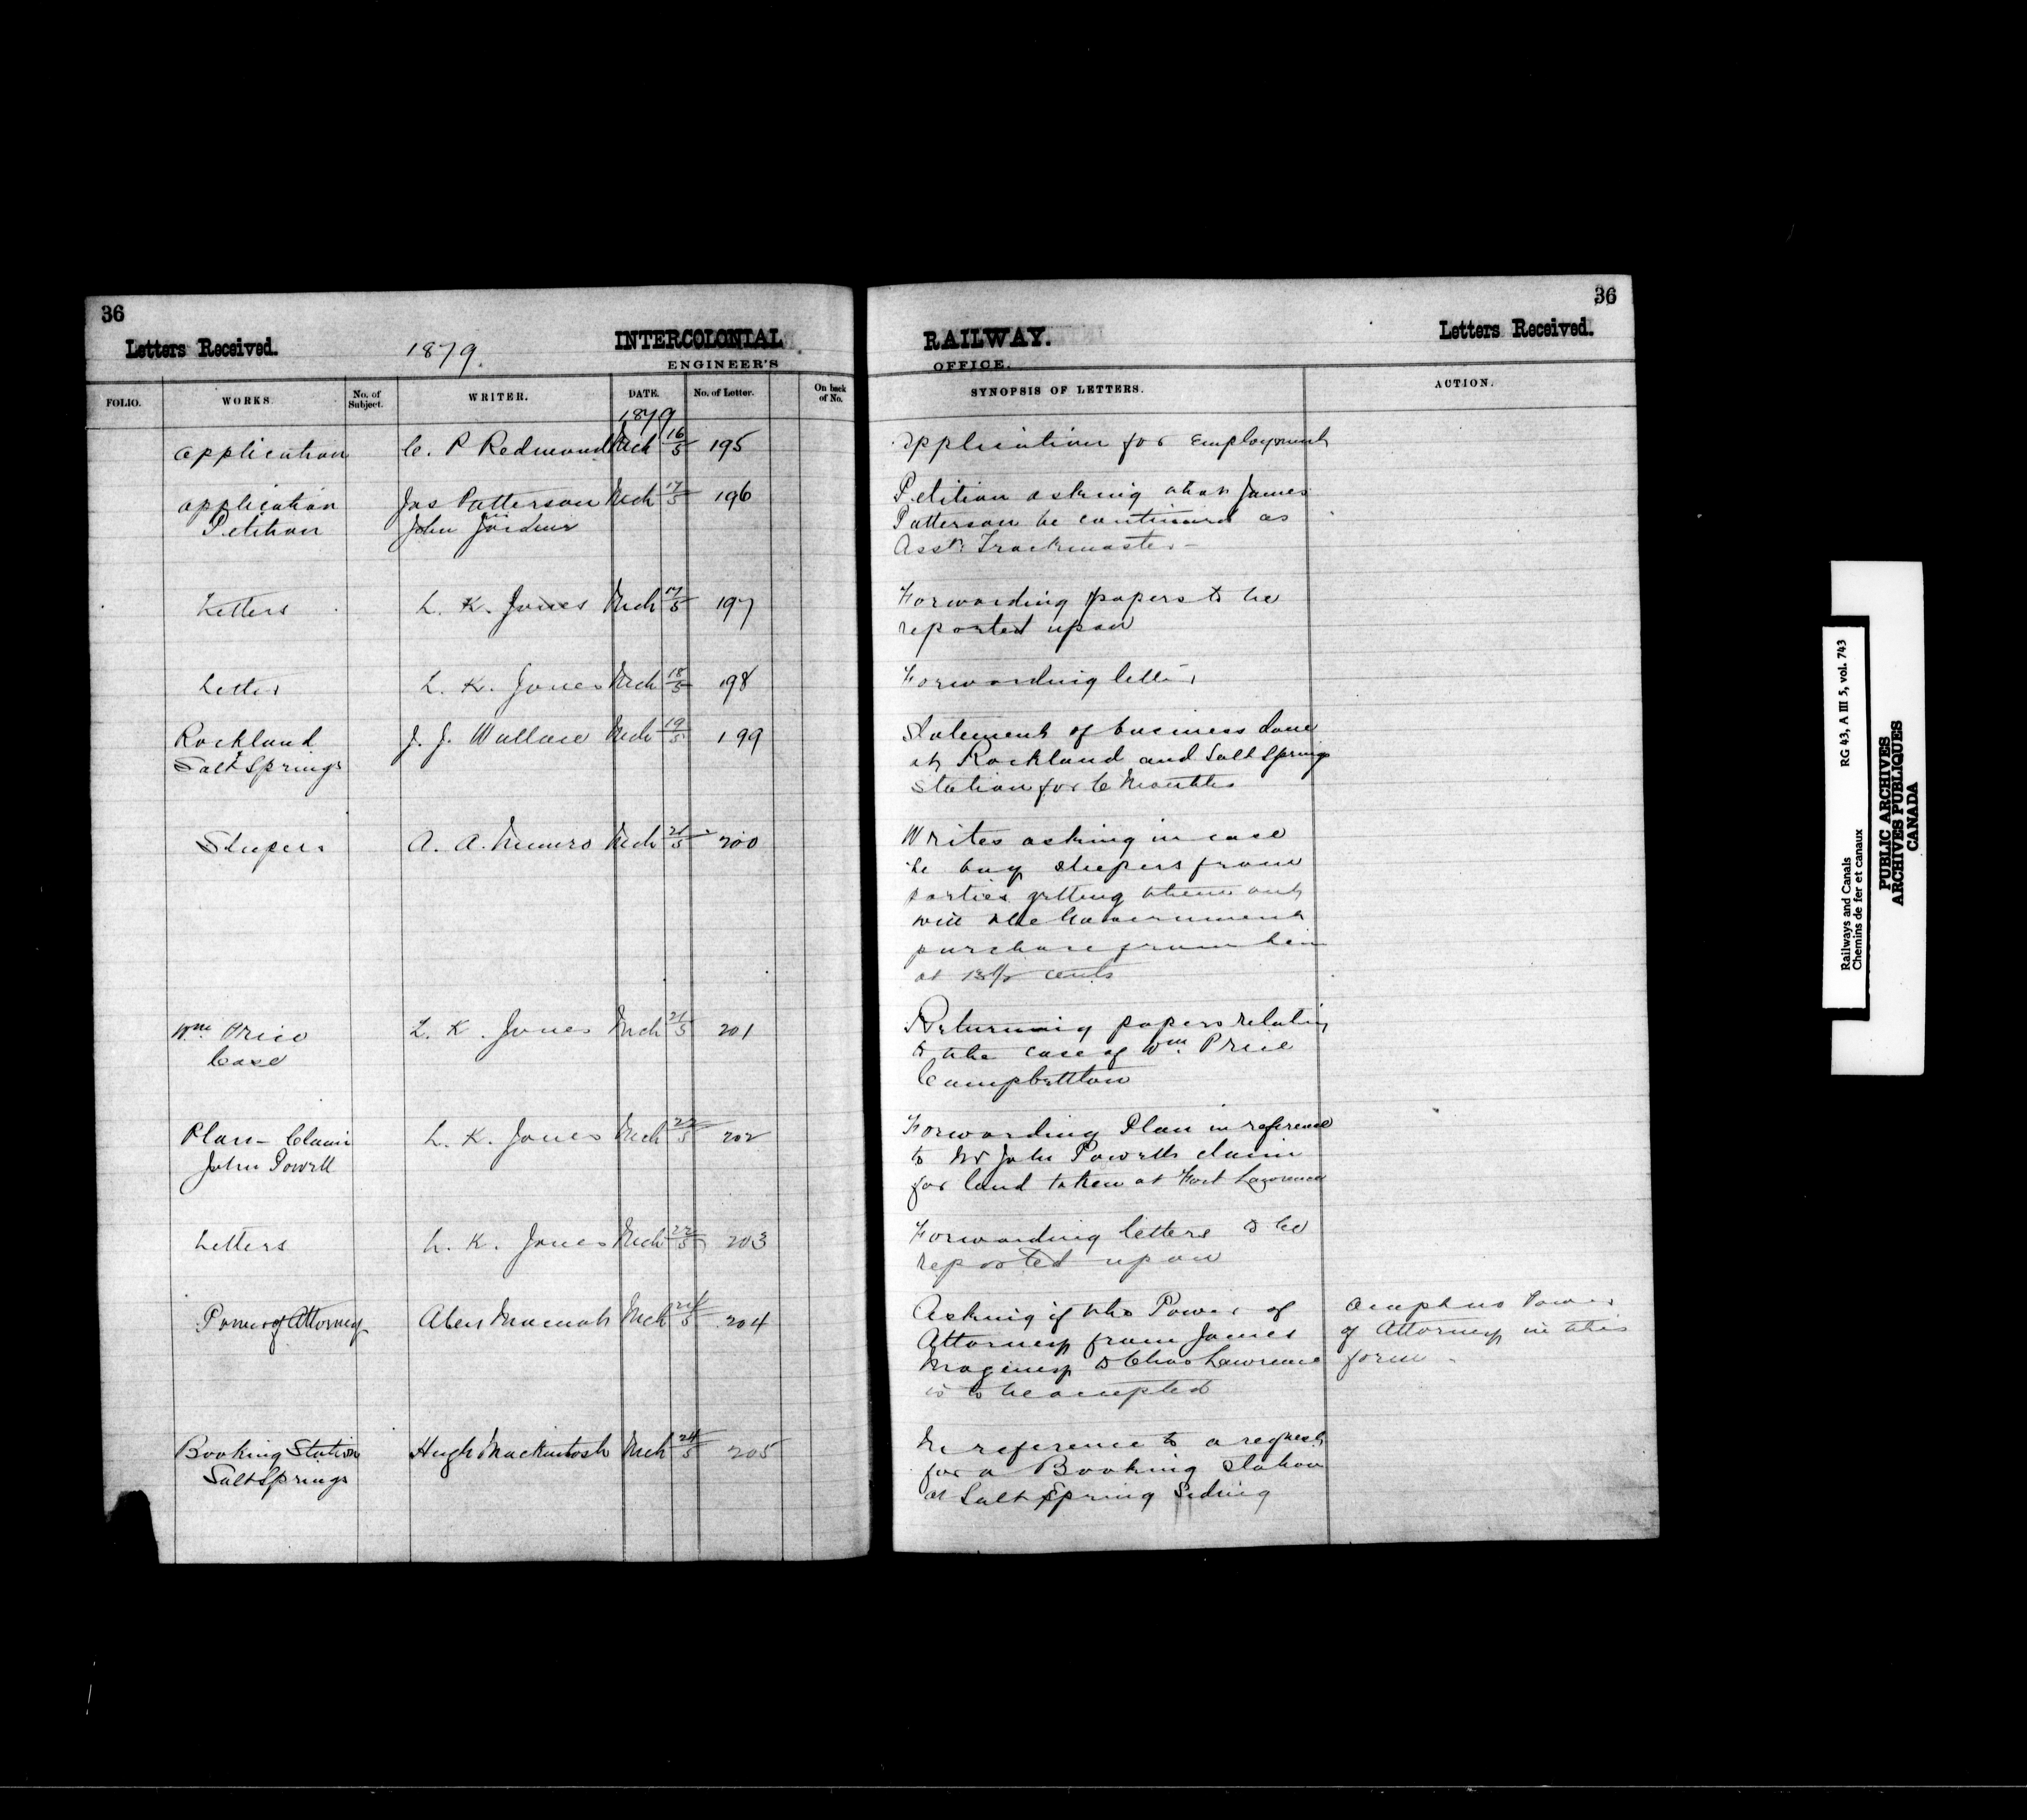 36
Letters Received.
1879.
INTERCOLONIAL
ENGINEER'S
FOLIO.
WORKS
No. of Subject.
WRITER.
DATE.
No. of Letter.
On back of No.
1879
application C. P Redmond Mch 16/5 195
application Jas Patterson Mch 17/5 196
Petition John
Letters L. K. Jones Mch 17/5 197
Letter L. K. Jones Mch 18/5 198
Rockland J. J. Wallace Mch 19/5 199
Salt Springs
Sleepers A. A. Munro Mch 21/5 200
Wm. Price L. K. Jones Mch 21/5 201
Case
Plan - Claim L. K. Jones Mch 22/5 202
John Powell
Letters L. K. Jones Mch 22/5 203
Power of Attorney Mch 24/5 204
Booking Station Hugh Mackintosh Mch 24/5 205
Salt Springs
36
RAILWAY.
Letters Received.
OFFICE.
SYNOPSIS OF LETTERS.
ACTION.
Application for Employment
Petition asking that James
Patterson be continued as
Asst. Trackmaster -
Forwarding papers to be
reported upon
Forwarding letter
Statement of business done
at Rockland and Salt Springs
Station for 6 Months
Writes asking in case
he buy sleepers from
parties getting them out
will the Government
purchase from him
at 13½ cents
Returning papers relating
to the case of Wm. Price
Campbellton
Forwarding Plan in reference
to Mr John Powells claim
for land taken at Fort Lawrence
Forwarding letters to be
reported upon
Asking if the Power of
Attorney from James
to Chas Lawrence
is to be accepted
Accepting Power
of Attorney in this
form -
In reference to a request
for a Booking Station
at Salt Spring Siding
Railways and Canals
Chemins de fer et canaux
RG 43, A III 5, vol. 743
PUBLIC ARCHIVES
ARCHIVES PUBLIQUES
CANADA